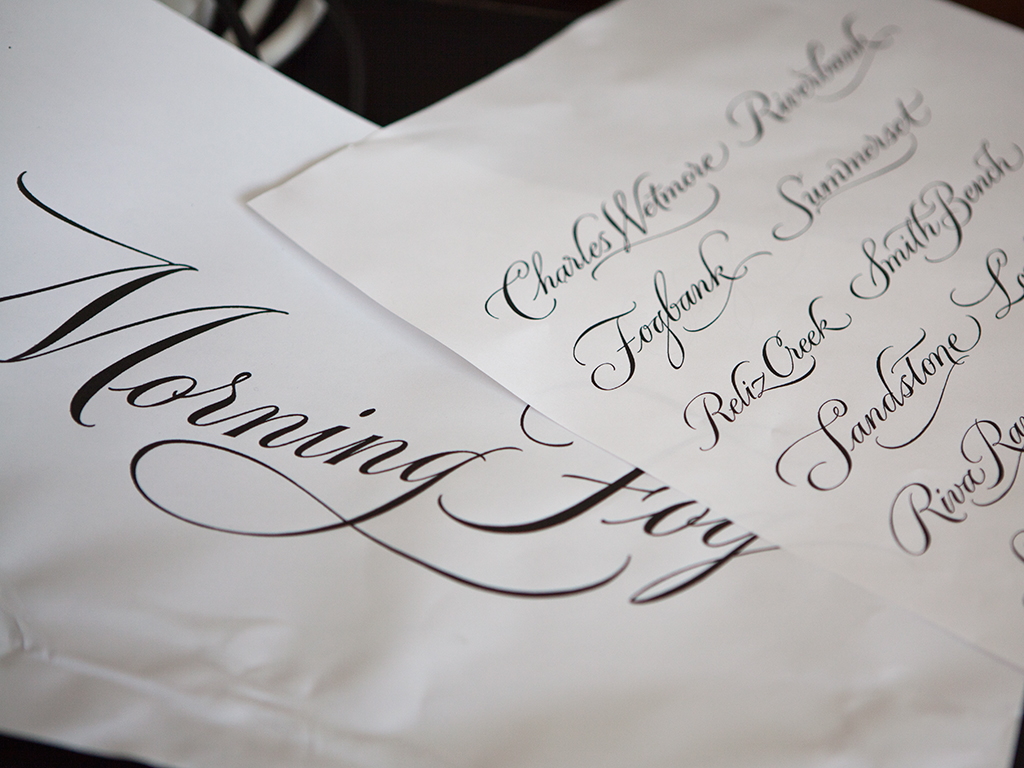 Morning Fog
Charles Wetmore Riverbank
Fogbank Summerset
Reliz Creek Smith Bench
Sandstone
Riva